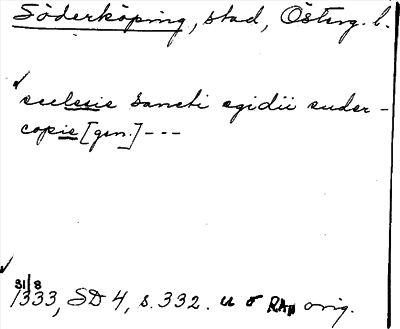 Söderköping, stad, Österg. l.
ecclesie sancti egidii suder-
copie [gen.] ---
31/8
1333, SD 4, s. 332. u o RA orig.